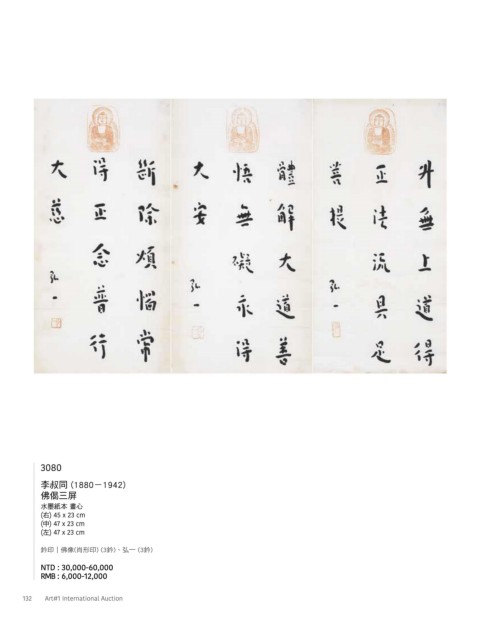 升無上道得
正法流具足
菩提
弘一
體解大道善
悟無礙永得
大安
弘一
斷除煩惱常
得正念普行
大慈
弘一
3080
李叔同 (1880－1942)
佛偈三屏
水墨紙本 書心
(右) 45 x 23 cm
(中) 47 x 23 cm
(左) 47 x 23 cm
鈐印｜佛像(肖形印) (3鈐)、弘一 (3鈐)
NTD : 30,000-60,000
RMB : 6,000-12,000
132 Art#1 International Auction